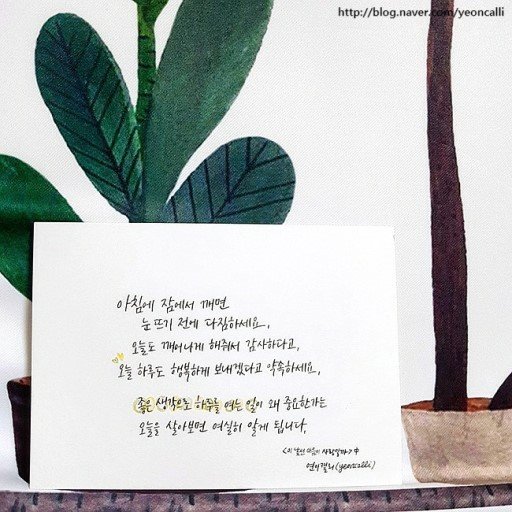 http://blog.naver.com/yeoncalli
아침에 잠에서 깨면
눈 뜨기 전에 다짐하세요.
오늘도 깨어나게 해줘서 감사하다고,
오늘 하루도 행복하게 보내겠다고 약속하세요.
좋은 생각으로 하루를 여는 일이 왜 중요한가는
오늘을 살아보면 여실히 알게 됩니다.
中
(yeoncalli)